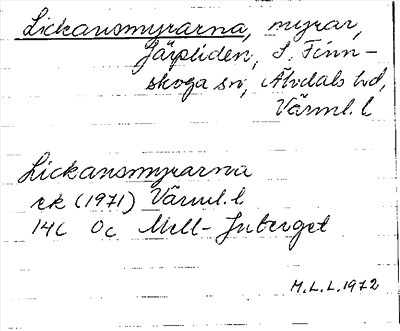 Lickansmyrarna, myrar,
Järpliden, S. Finn-
skoga sn, Älvdals hd,
Värml. l
Lickansmyrarna
rk (1971) Värml. l
14C 0c Mell-Juberget
M.L.L. 1972